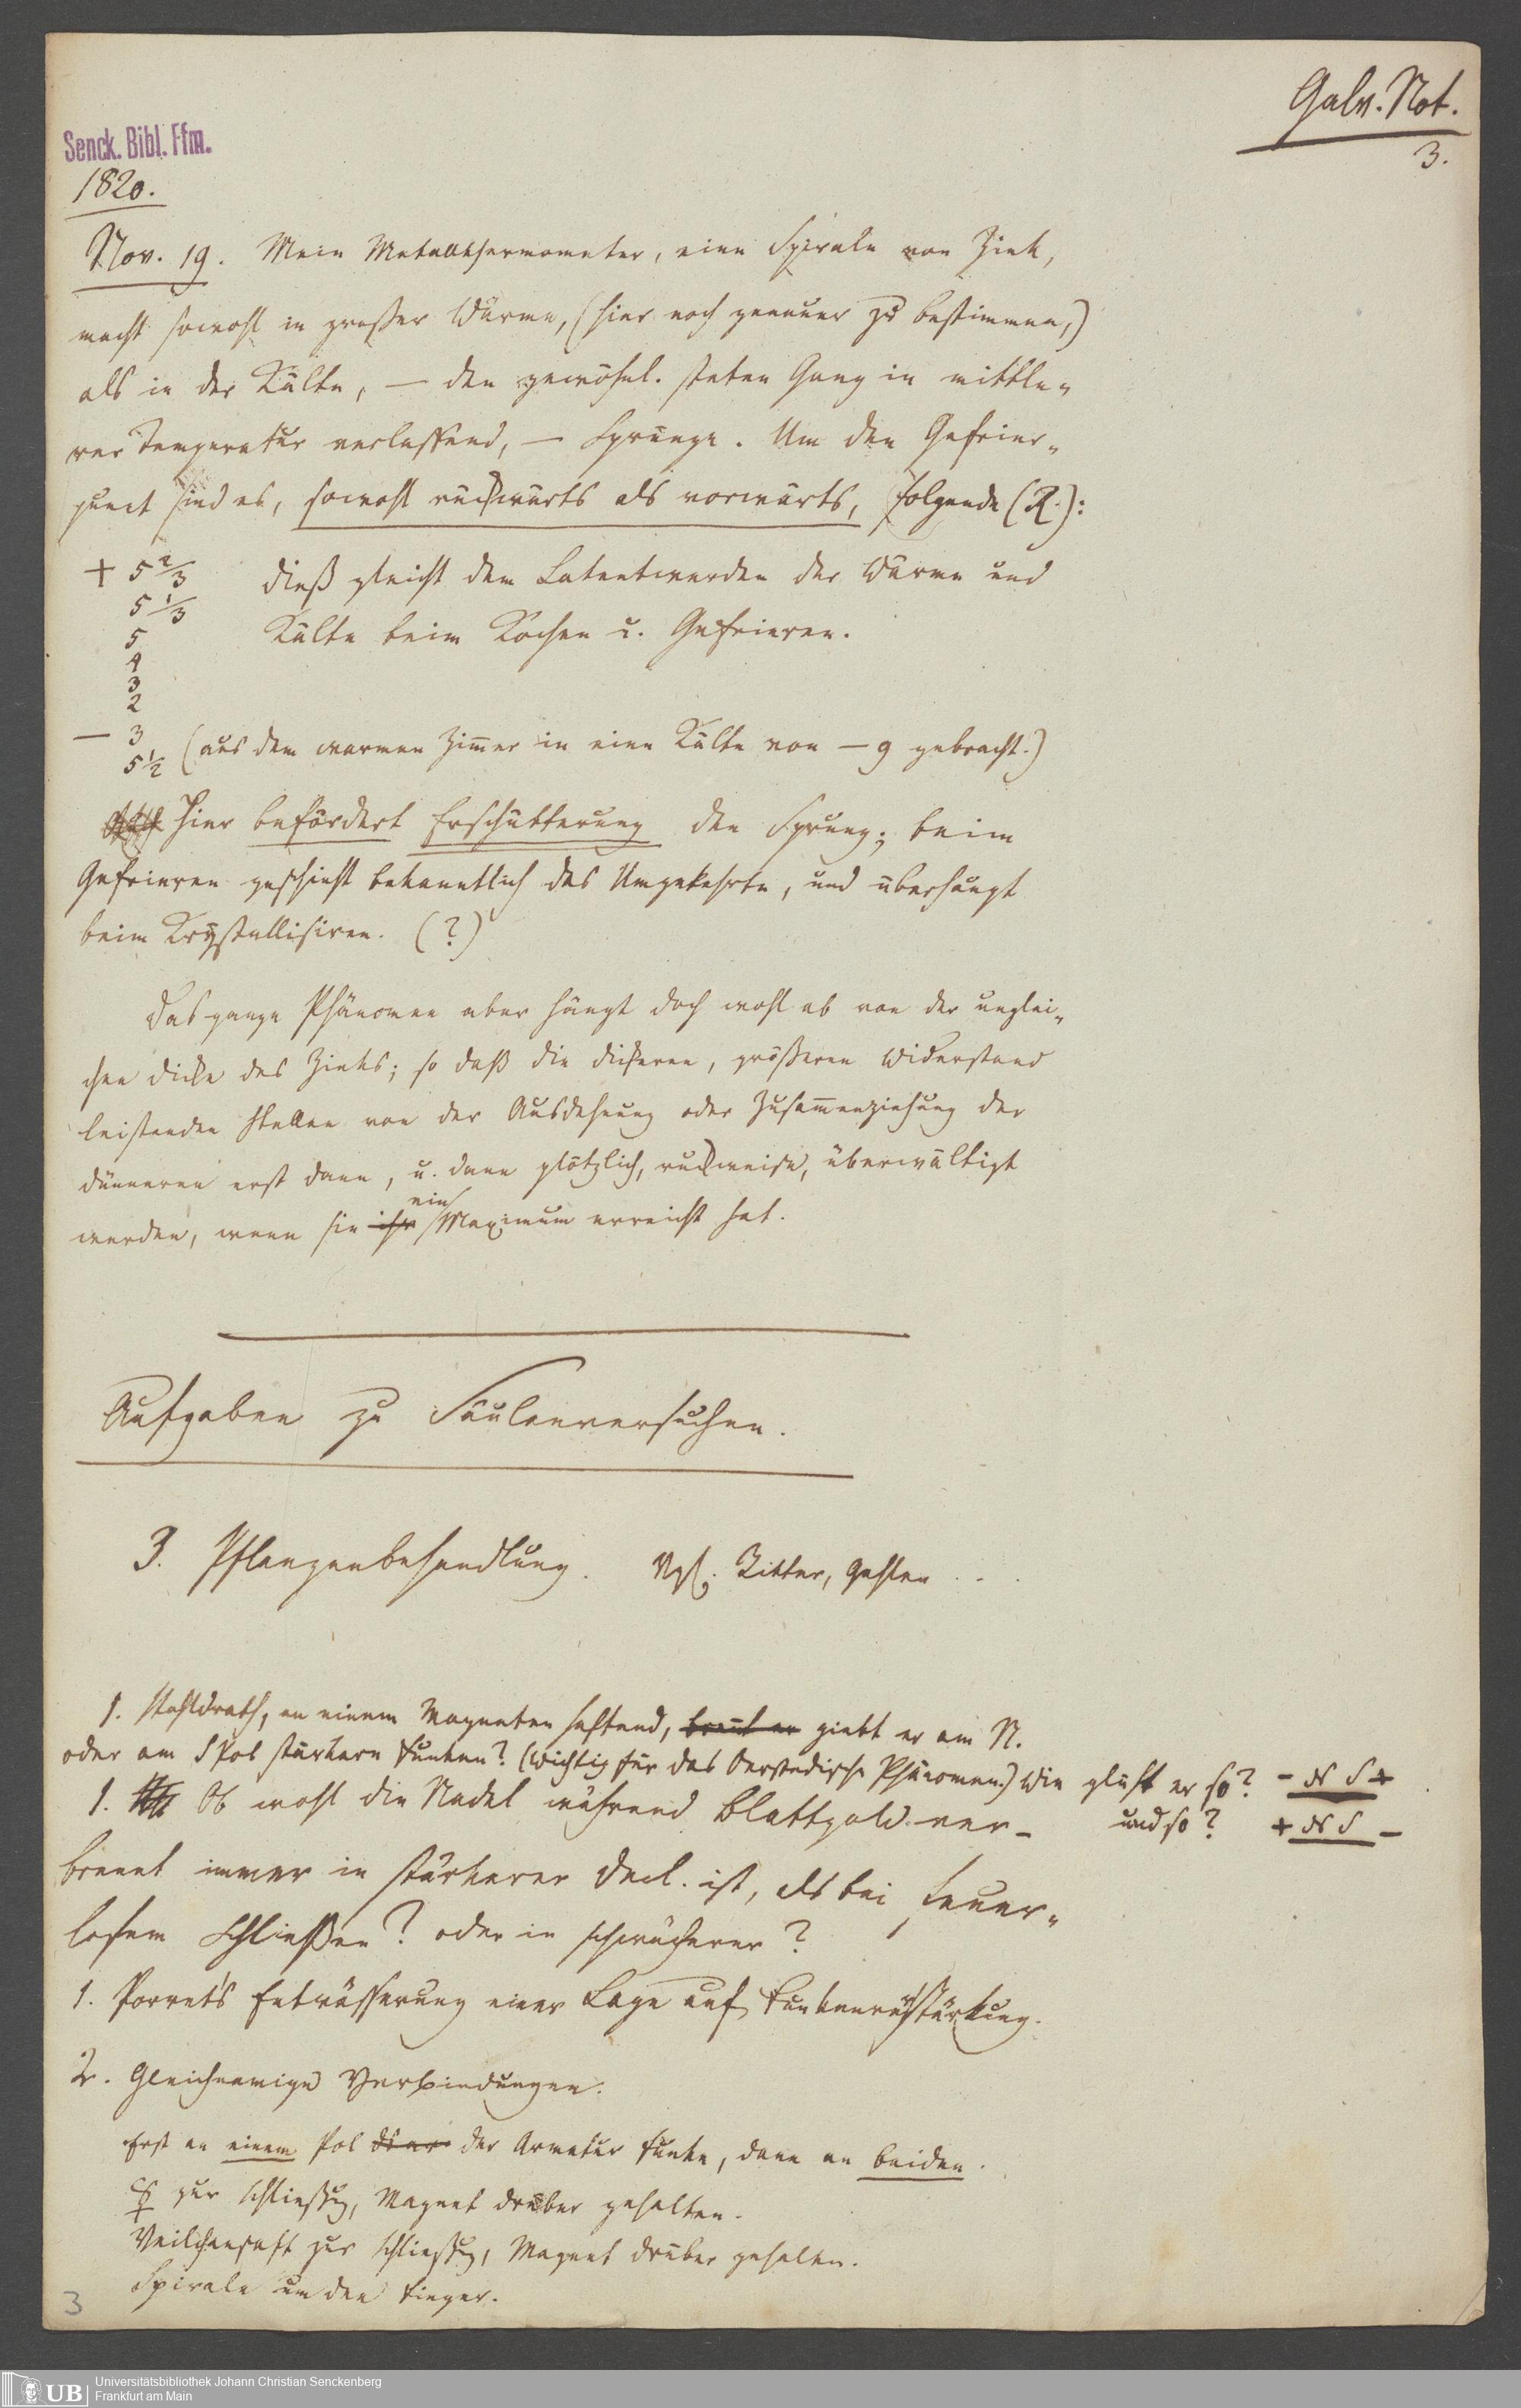 Galv. Not.
3.
Senck. Bibl. Ffm.
1820.
Nov. 19. Mein Metallthermometer, eine Spirale von Zink,
macht sowohl in großer Wärme, (hier noch genauer zu bestimmen,)
als in der Kälte, — den gewöhnl. steten Gang in mittle„
rer Temperatur verlassend, — Sprünge. Um den Gefrier„
punct sind es, sowohl rückwärts als vorwärts, folgende (R.):
+ 5 2/3 dieß gleicht dem Latentwerden der Wärme und
5 1/3
5 Kälte beim Kochen u. Gefrieren.
4
3
2
— 3 (aus dem warmen Zimmer in eine Kälte von — 9 gebracht.)
5 1/2
Hier befördert Erschütterung den Sprung; beim
Gefrieren geschieht bekanntlich das Umgekehrte, und überhaupt
beim Krystallisiren. (?)
Das ganze Phänomen aber hängt doch wohl ab von der unglei„
chen Dicke des Zinks; so daß die dickeren, größeren Widerstand
leistenden Stellen von der Ausdehnung oder Zusammenziehung der
dünneren erst dann, u. dann plötzlich, ruckweise, überwältigt
werden, wenn sie ihr ein Maximum erreicht hat.
Aufgaben zu Säulenversuchen.
3. Pflanzenbehandlung. Vgl. Ritter, Gehlen . . .
1. Stahldrath, an einem Magneten haftend, brennt er giebt er am N.
oder am S Pol stärkern Funken? (Wichtig für das Oerstedische Phänomen.) Wie glüht er so? - N S +
1. Ob wohl die Nadel während Blattgold ver- und so? + N S -
brennt immer in stärkerer Decl. ist, als bei feuer„
losem Schließen? oder in schwächerer?
1. Porret's Entwässerung einer Lage auf Funkenverstärkung.
2. Gleichnamige Verbindungen.
Erst an einem Pol der Armatur Funke, dann an beiden.
☿ zur Schließung, Magnet drüber gehalten.
Veilchensaft zur Schließung, Magnet drüber gehalten.
Spirale um den Finger.
3
UB Universitätsbibliothek Johann Christian Senckenberg
Frankfurt am Main